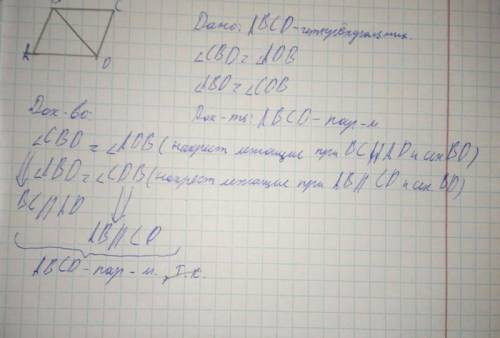 B C
A D
Дано: ABCD - четырёхугольник.
∠CBD = ∠ADB
∠ABD = ∠CDB
Док-ть: ABCD - пар-м.
Док-во:
∠CBD = ∠ADB (накрест лежащие при BC || AD и сек BD)
⇓ ∠ABD = ∠CDB (накрест лежащие при AB || CD и сек BD)
BC || AD ⇓
AB || CD
ABCD - пар-м., т.к.